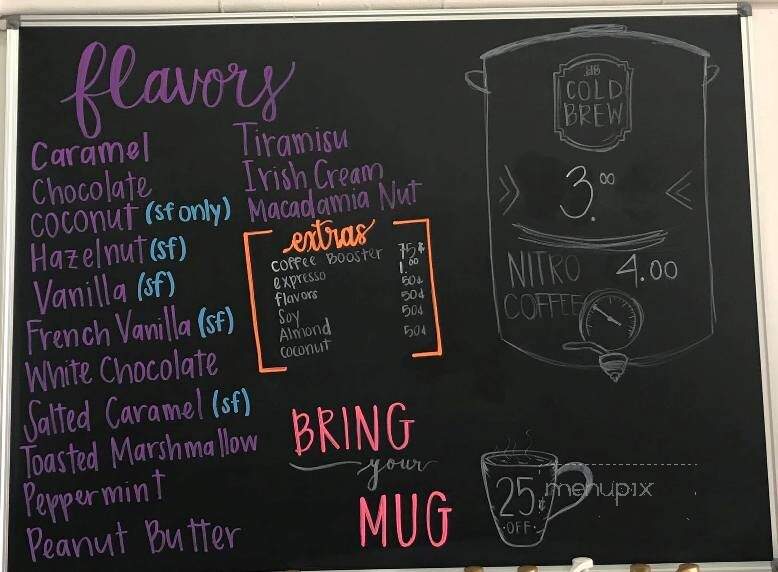 flavors
Caramel
Chocolate
Coconut (sf only)
Hazelnut (sf)
Vanilla (sf)
French Vanilla (sf)
White Chocolate
Salted Caramel (sf)
Toasted Marshmallow
Peppermint
Peanut Butter
Tiramisu
Irish Cream
Macadamia Nut
extras
Coffee Booster 75¢
espresso 1.00
flavors 50¢
Soy 50¢
Almond 50¢
coconut 50¢
BRING
your
MUG
25¢
OFF
COLD
BREW
3.00
NITRO 4.00
COFFEE
menupix